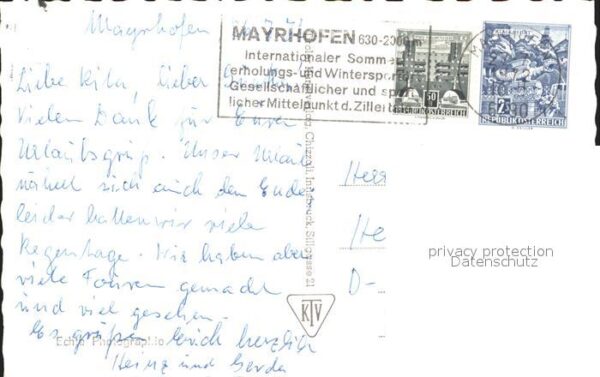 Mayrhofen
MAYRHOFEN 630-2300 m
Internationaler Sommer
erholungs- und Wintersport
Gesellschaftlicher und sp
licher Mittelpunkt d. Zillert
Liebe Rita, lieber
Vielen Dank für Euren
Urlaubsgruß. Unser Urlaub
nähert sich auch dem Ende
leider hatten wir viele
Regentage. Wir haben aber
viele Touren gemacht
und viel gesehen.
Es grüßen Euch herzlich
Heinz und Gerda
Echte Photographie
Chizzali, Innsbruck, Sillgasse 21
KTV
50
REPUBLIK ÖSTERREICH
REPUBLIK ÖSTERREICH
6290
Herr
He
D-
privacy protection
Datenschutz